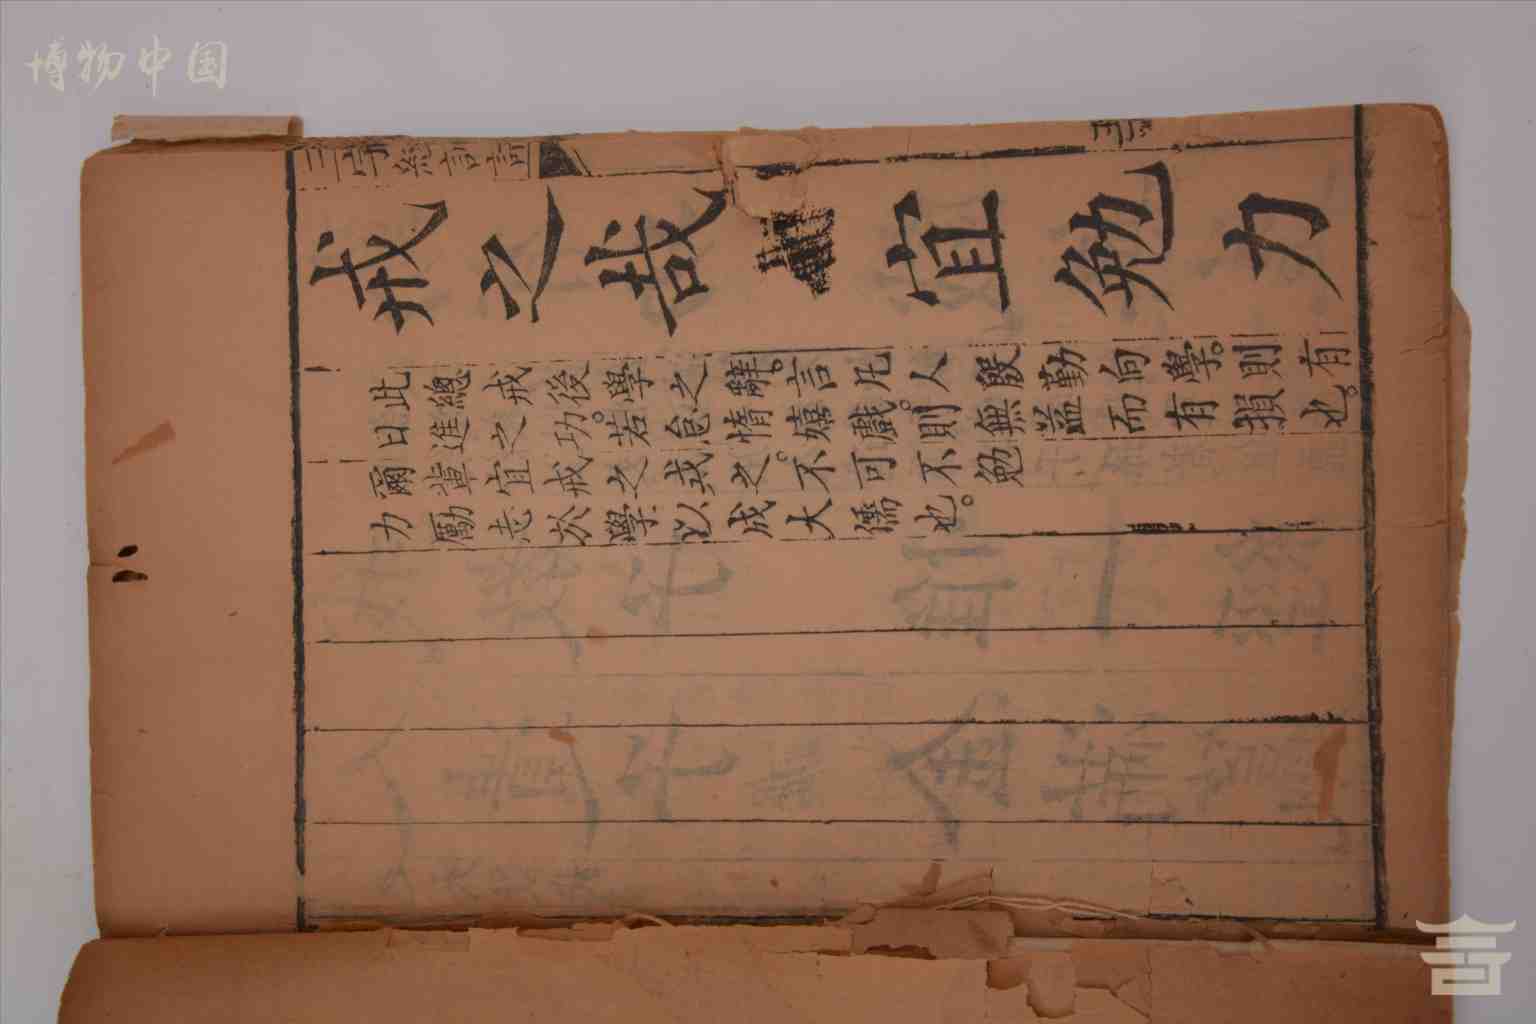 博物中国
三字經訓詁
戒之哉 宜勉力
此總戒後學之辭。言凡人殷勤向學。則有
日進之功。若怠惰嬉戲。則無益而有損也。
爾輩宜戒之戒之。不可不勉
力勵志於學以成大儒也。